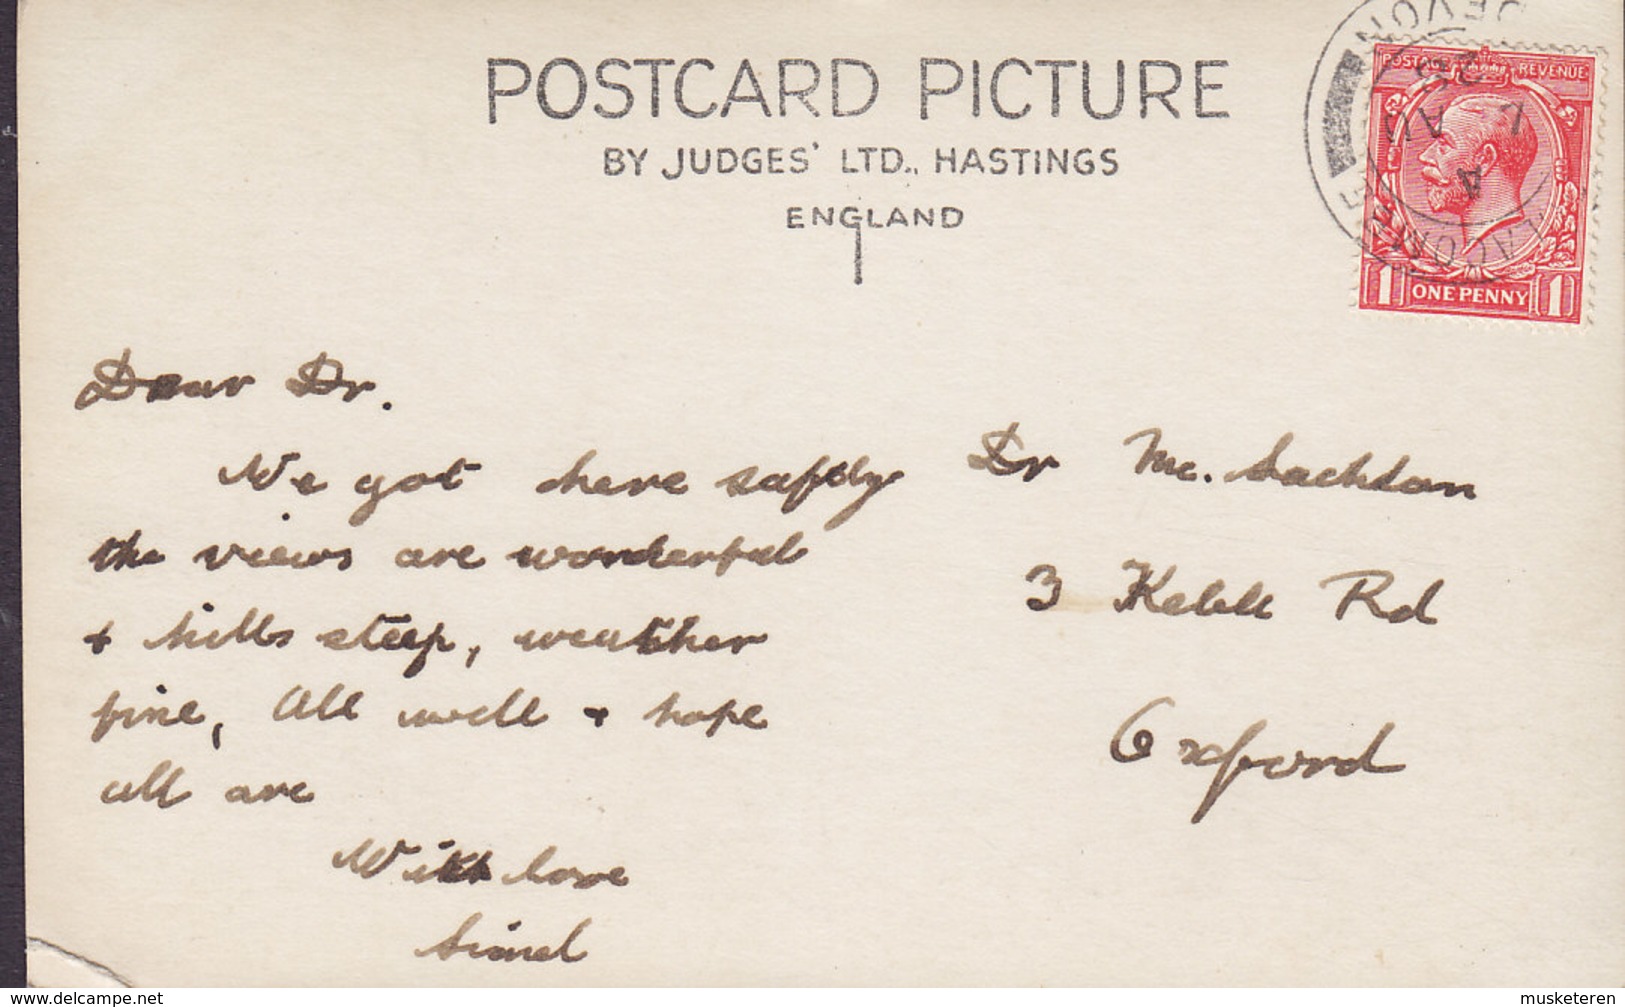 POSTCARD PICTURE
BY JUDGES' LTD., HASTINGS
ENGLAND
POSTAGE REVENUE
1 ONE PENNY 1
DEVON
AU
Dear Dr.
We got here safely
the views are wonderful
+ hills steep, weather
fine, All well + hope
all are
With love
Dr Mc.
3 Keble Rd
Oxford
www.delcampe.net
musketeren